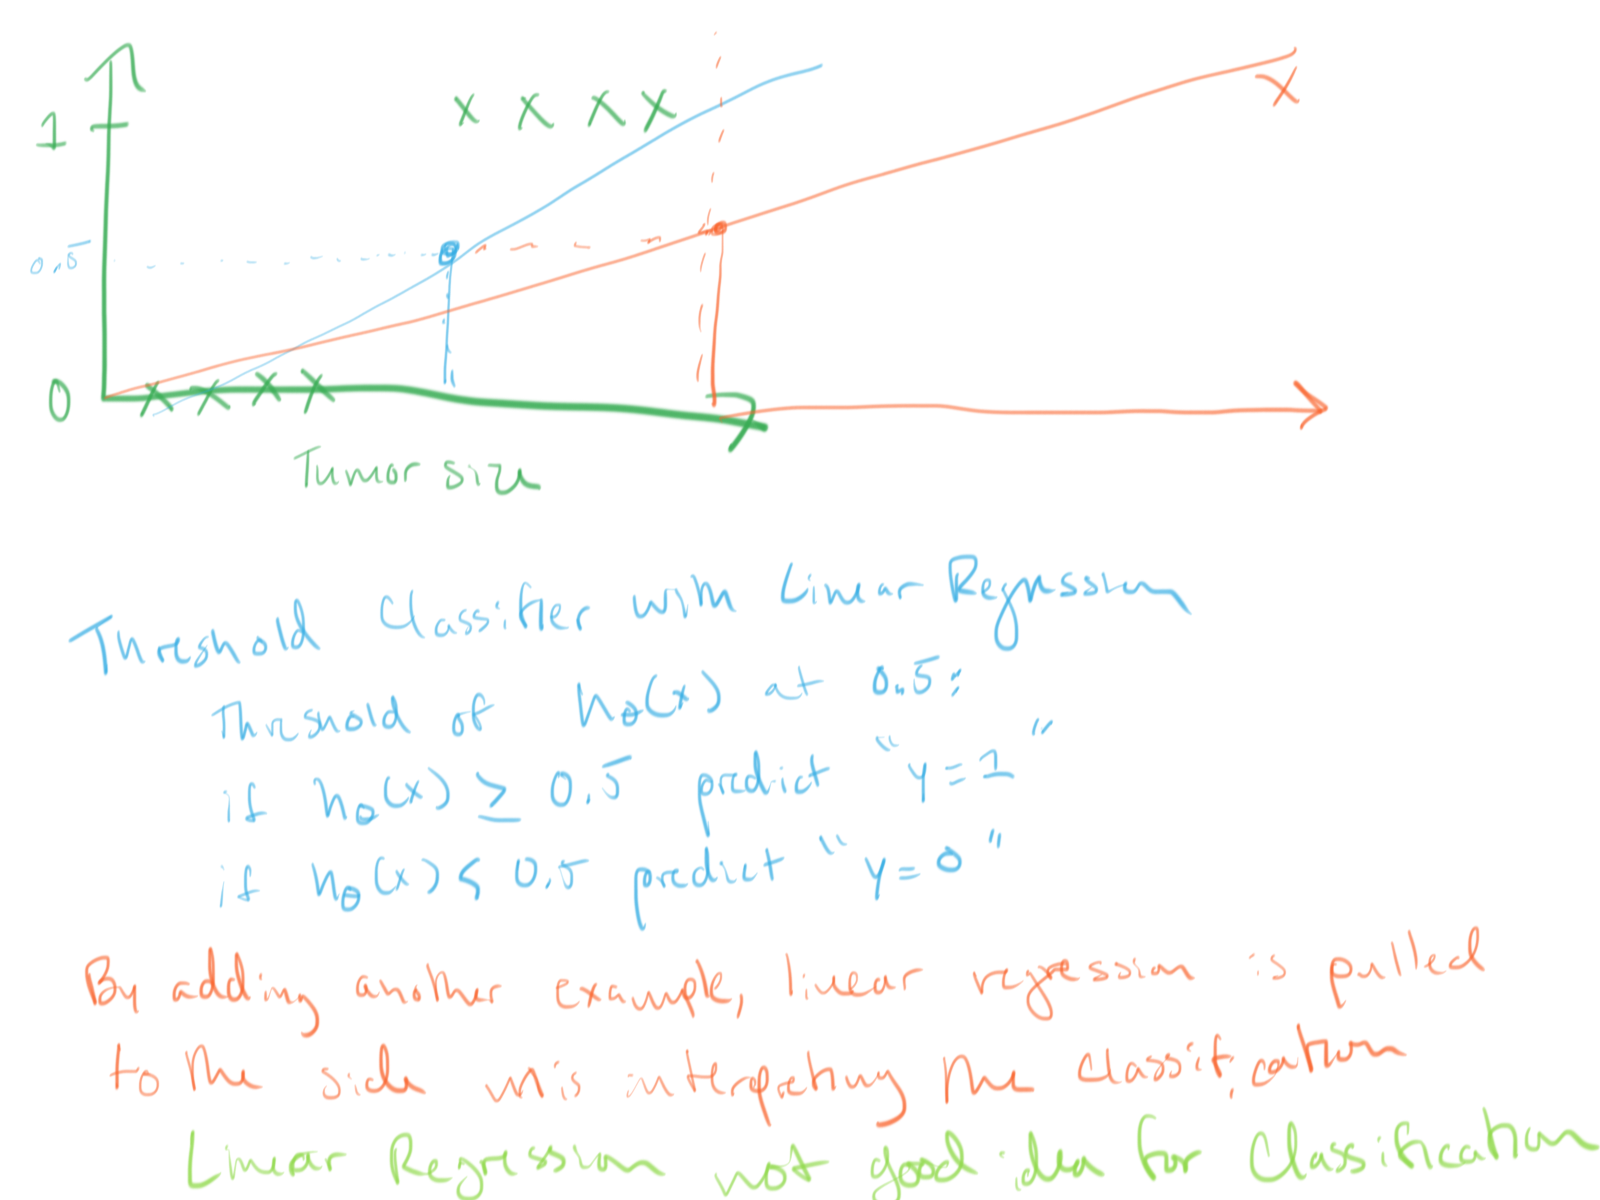 1
0.5
0
Tumor size
Threshold Classifier with Linear Regression
Threshold of hθ(x) at 0.5:
if hθ(x) ≥ 0.5 predict "y=1"
if hθ(x) < 0.5 predict "y=0"
By adding another example, linear regression is pulled
to the side misinterpreting the classification
Linear Regression not good idea for Classification